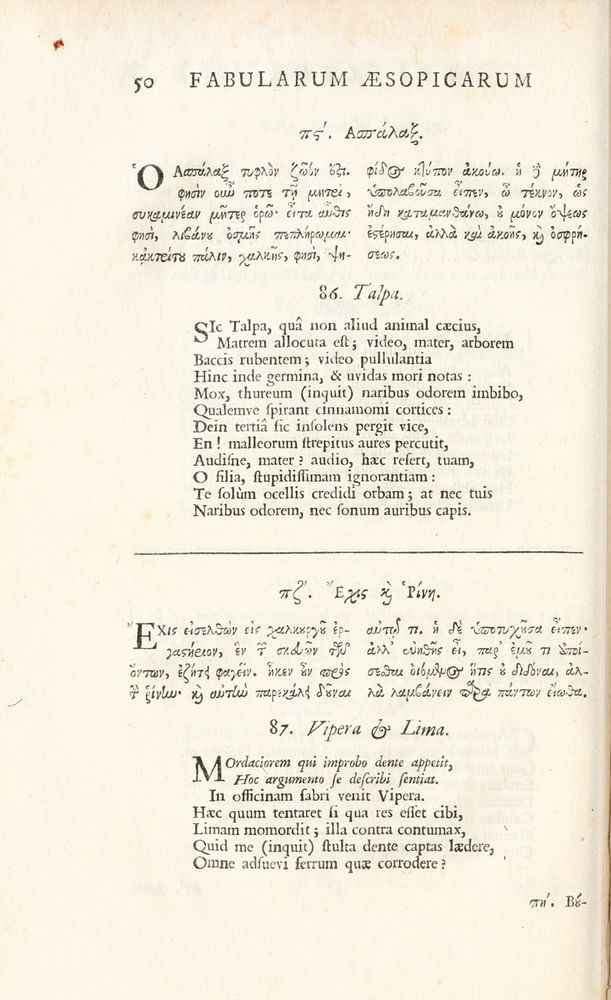 50 FABULARUM ÆSOPICARUM
πϛʹ. Ασπάλαξ.
Ὁ Ασπάλαξ τυφλὸν ζῶόν ἐςι.
φησὶν οὖν ποτε τῇ μητεὶ,
συκαμινέαν μῆτερ ὁρῶ· εἶτα αὖθις
φησὶ, λιβάνου ὀσμῆς πεπλήρωμαι·
κἀκ τείτου πάλιν, χαλκῆς, φησὶ, ψη-
φίδος κτύπον ἀκούω. ἡ δὲ μήτηρ
ὑπολαβοῦσα εἶπεν, ὦ τέκνον, ὡς
ἤδη καταμανθάνω, οὐ μόνον ὄψεως
ἐςέρησαι, ἀλλὰ καὶ ἀκοῆς, καὶ ὀσφρή-
σεως.
86. Talpa.
SIc Talpa, quâ non aliud animal cæcius,
Matrem allocuta eſt; video, mater, arborem
Baccis rubentem; video pullulantia
Hinc inde germina, & uvidas mori notas:
Mox, thureum (inquit) naribus odorem imbibo,
Qualemve ſpirant cinnamomi cortices:
Dein tertiâ ſic inſolens pergit vice,
En! malleorum ſtrepitus aures percutit,
Audiſne, mater? audio, hæc refert, tuam,
O filia, ſtupidiſſimam ignorantiam:
Te ſolùm ocellis credidi orbam; at nec tuis
Naribus odorem, nec ſonum auribus capis.
πζʹ. Ἔχις καὶ Ῥίνη.
ἜΧις εἰσελθὼν εἰς χαλκουργοῦ ἐρ-
γαςήριον, ἓν τῶν σκευῶν τῶν
ὄντων, ἐζήτει φαγεῖν. ἧκεν οὖν πρὸς
τὴν ῥίνην· καὶ αὐτὴν παρεκάλει δοῦναι
αὐτῷ τι. ἡ δὲ ὑποτυχοῦσα εἶπεν·
ἀλλ' εὐήθης εἶ, παρ' ἐμοῦ τι ἀποί-
σεσθαι οἰόμενος ἥτις οὐ διδόναι, ἀλ-
λὰ λαμβάνειν παρὰ πάντων εἴωθα.
87. Vipera & Lima.
MOrdaciorem qui improbo dente appetit,
Hoc argumento ſe deſcribi ſentiat.
In officinam fabri venit Vipera.
Hæc quum tentaret ſi qua res eſſet cibi,
Limam momordit; illa contra contumax,
Quid me (inquit) ſtulta dente captas lædere,
Omne adſuevi ferrum quæ corrodere?
πηʹ. Βȣ-